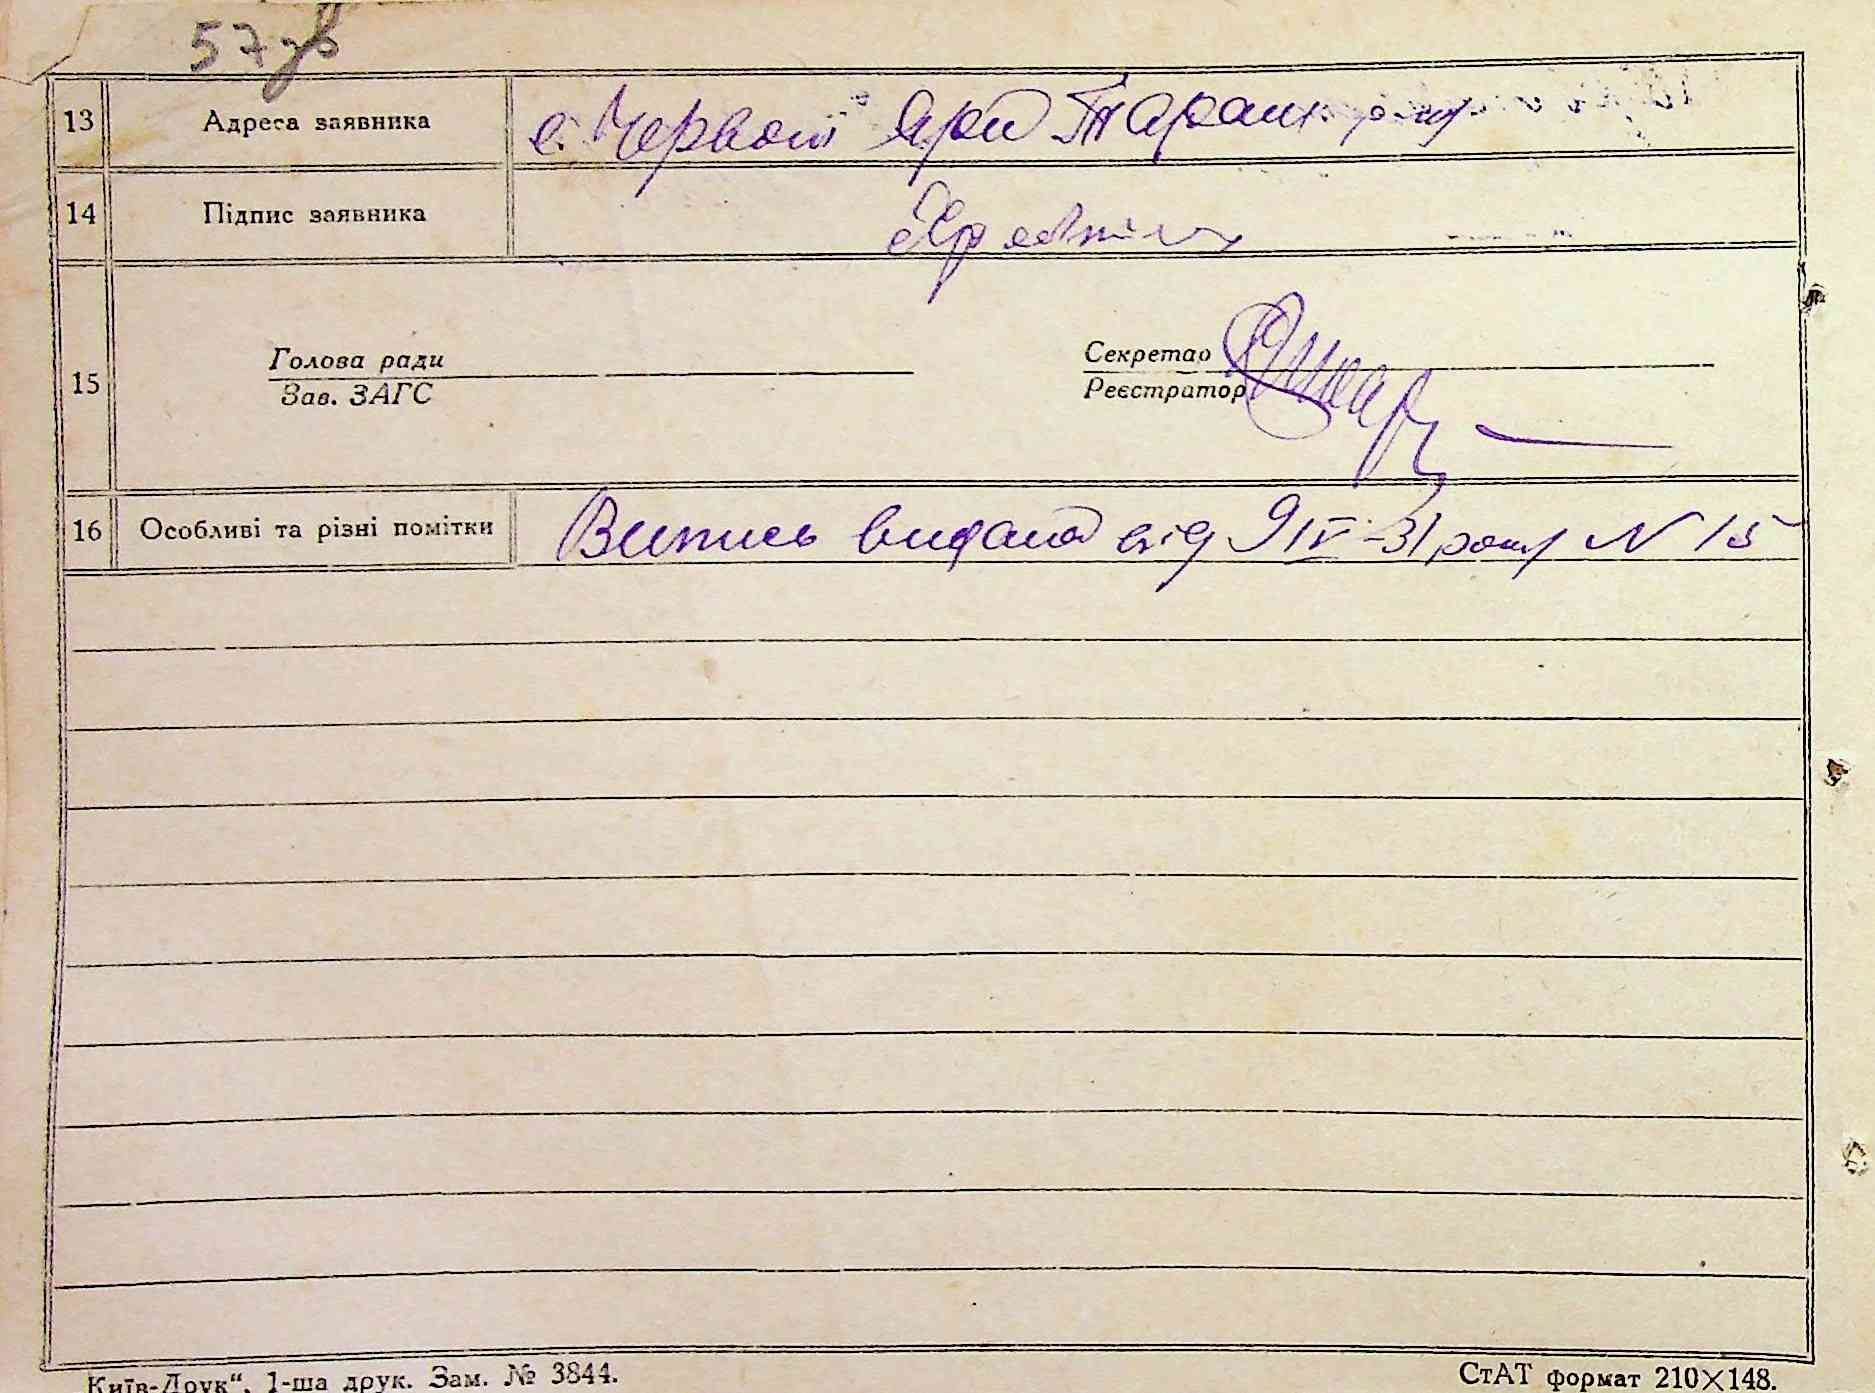 57 зв
13 Адреса заявника с. Червоні Яри Таращ. р-ну
14 Підпис заявника
15 Голова ради Секретар
Зав. ЗАГС Реєстратор
16 Особливі та різні помітки Випись видана від 9/IV-31 року N 15
Київ-Друк“, 1-ша друк. Зам. № 3844. СтАТ формат 210×148.